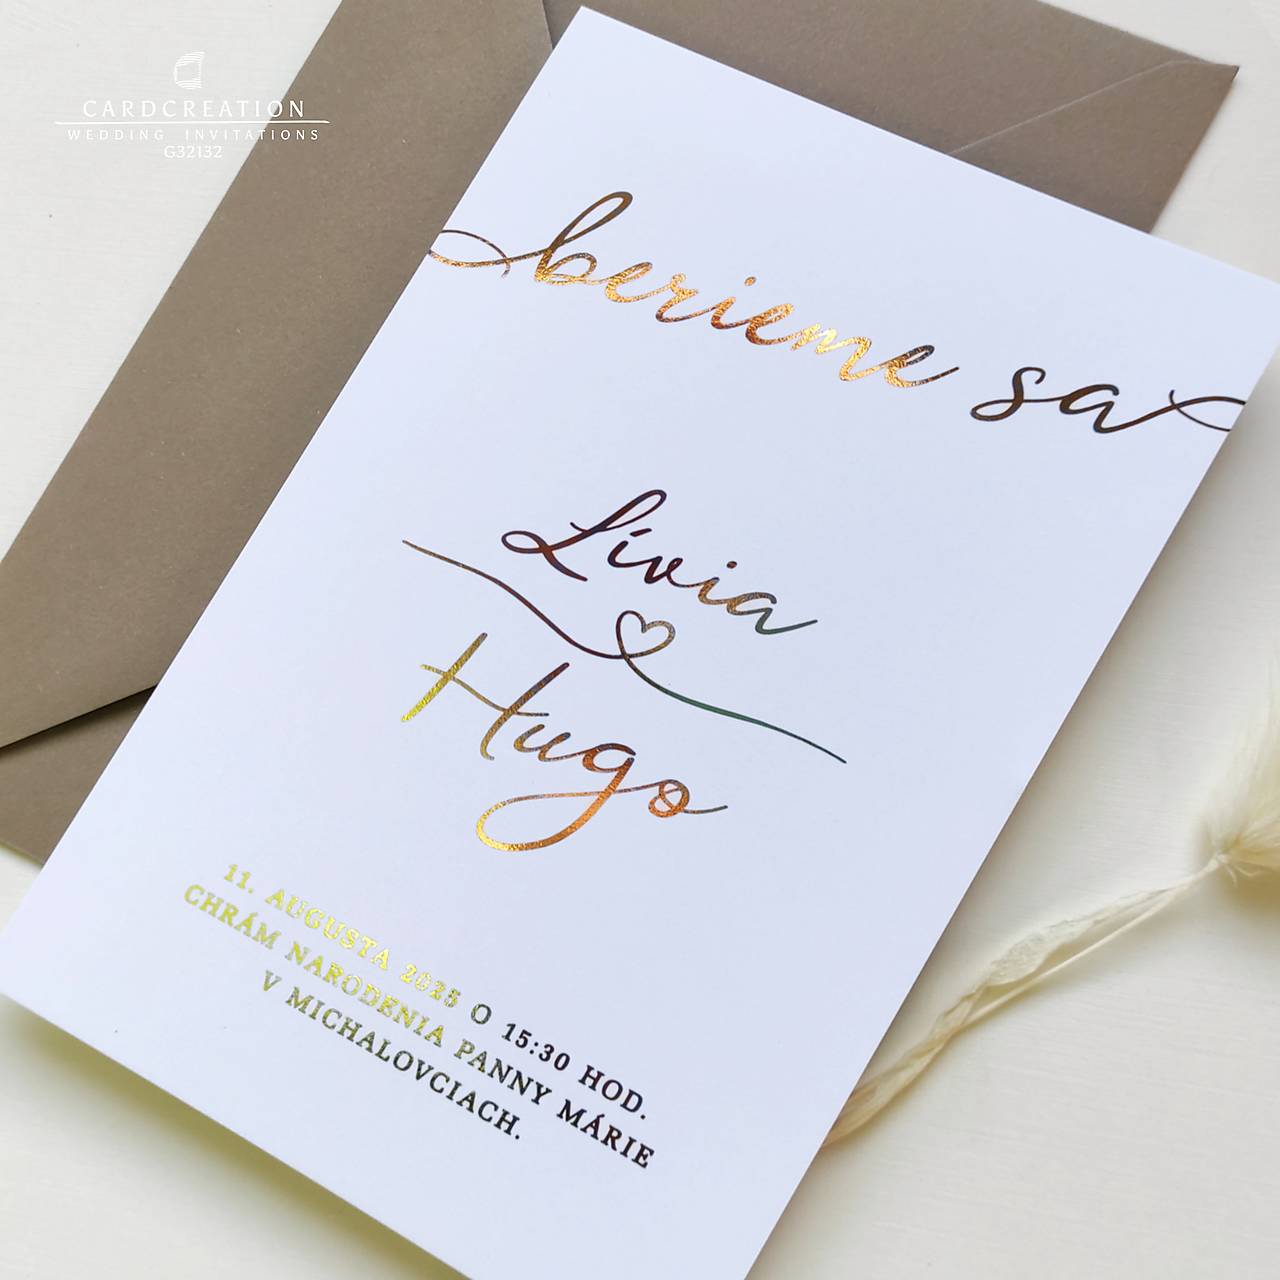 CARDCREATION
WEDDING INVITATIONS
G32132
berieme sa
Lívia
Hugo
11. AUGUSTA 2025 O 15:30 HOD.
CHRÁM NARODENIA PANNY MÁRIE
V MICHALOVCIACH.